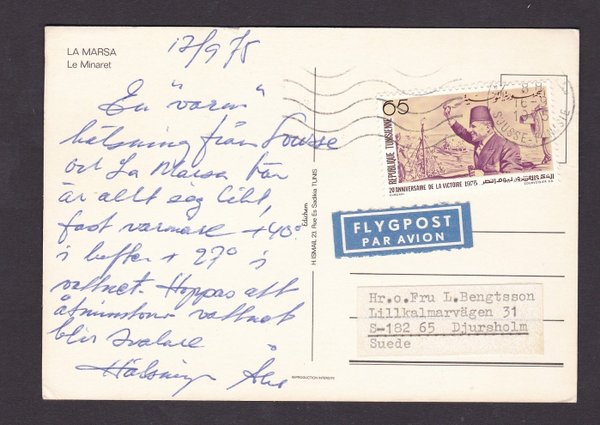 LA MARSA
Le Minaret
17/9 75
En "varm"
hälsning från Sousse
och La Marsa här
är allt sig likt,
fast varmare +40°
i luften + 27° i
vattnet. Hoppas att
åtminstone vattnet
blir svalare
Hälsningar
Edichem
H. ISMAIL 23, Rue Es Sadikia TUNIS
REPRODUCTION INTERDITE
65
الجمهورية التونسية
REPUBLIQUE TUNISIENNE
20 ANNIVERSAIRE DE LA VICTOIRE 1975
SOUSSE
FLYGPOST
PAR AVION
Hr.o.Fru L.Bengtsson
Lillkalmarvägen 31
S-182 65 Djursholm
Suede